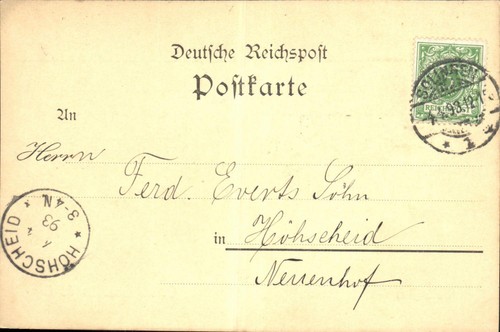 Deutsche Reichspost
Postkarte
An
Herrn
Ferd. Everts Söhn
in Höhscheid
Neuenhof
SOLINGEN
* 1 *
HÖHSCHEID
93
3-4N